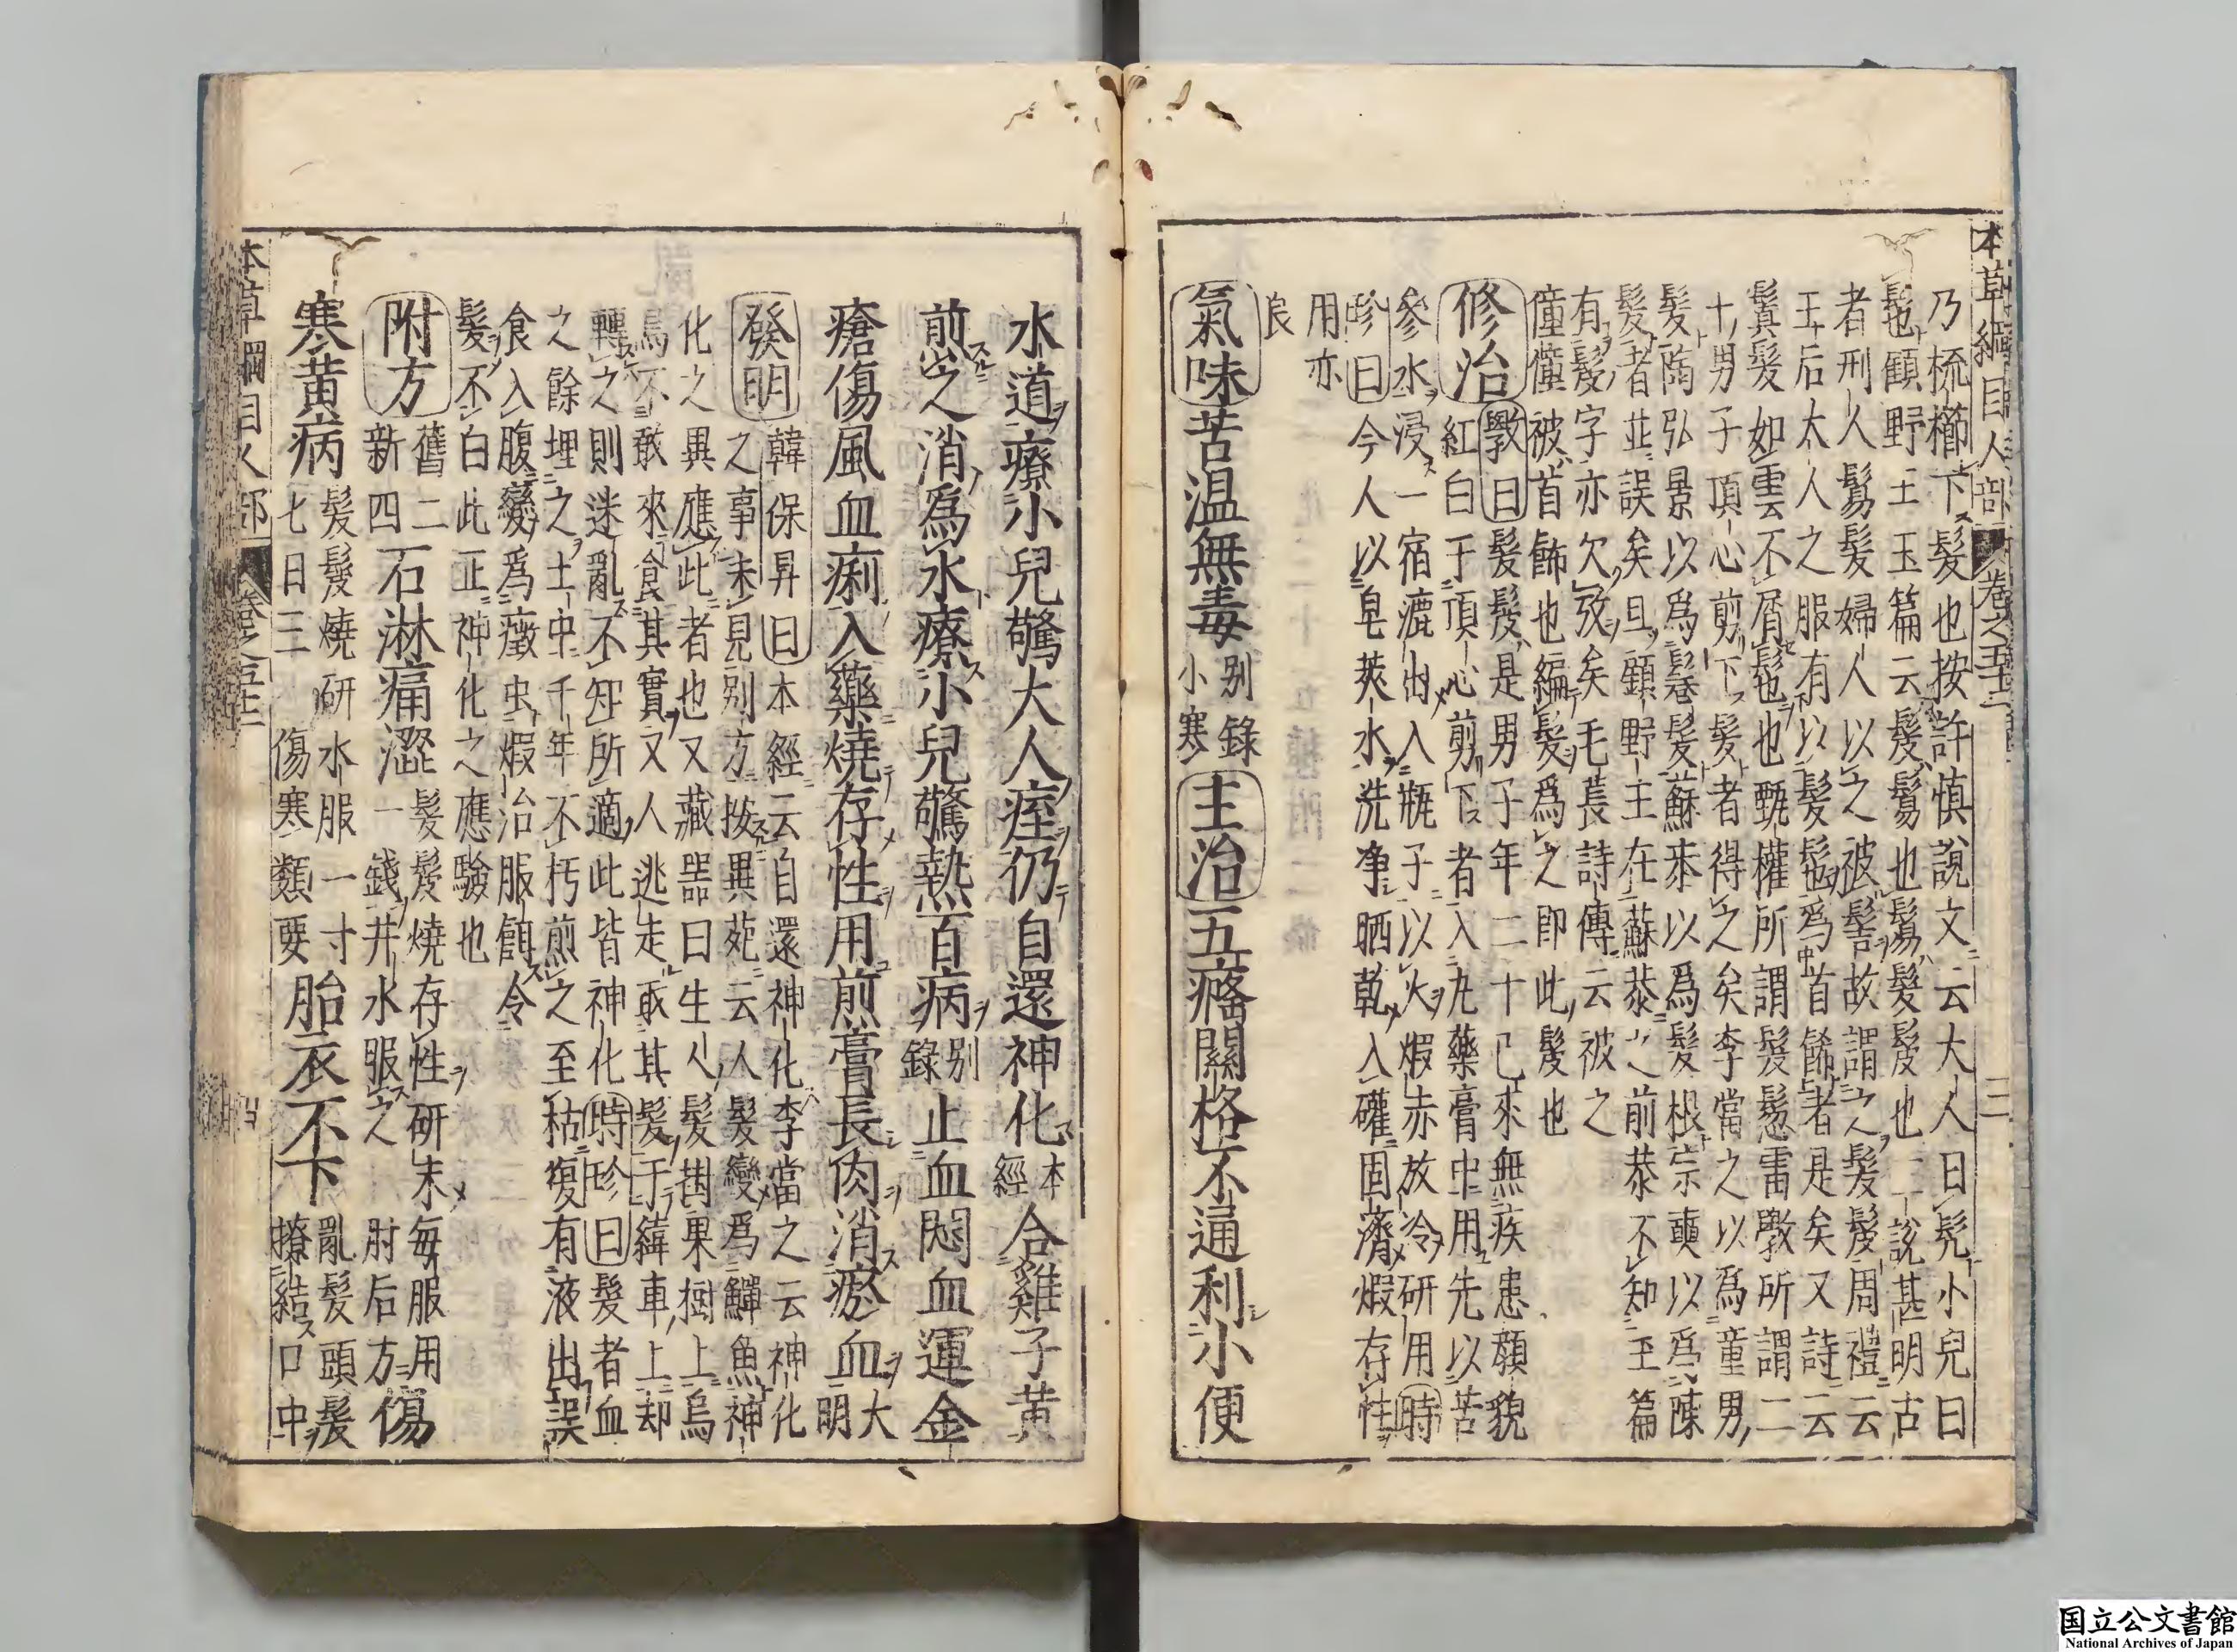 本草綱目人部 卷之五十二 三
乃梳櫛下髮也按許慎說文云大人曰髡小兒曰
髢也顧野王玉篇云髲鬄也鬄髲也二說甚明古
者刑人鬄髮婦人以之被髻故謂之髮髲周禮云
王后太人之服有以髮髢爲首餙者是矣又詩云
鬒髮如雲不屑髢也甄權所謂髮髲雷斆所謂二
十男子頂心剪下髮者得之矣李當之以爲童男
髮陶弘景以爲鬈髮蘇恭以爲髮根宗奭以爲陳
髮者並誤矣且顧野王在蘇恭之前恭不知玉篇
有髲字亦欠攷矣毛萇詩傳云被之
僮僮被首餙也編髮爲之即此髲也
修治 斆曰髮髲是男子年二十已來無疾患顔貌
紅白于頂心剪下者入丸藥膏中用先以苦
參水浸一宿漉出入瓶子以火煆赤放冷研用時
珍曰今人以皂莢水洗净晒乾入礶固濟煆存性
用亦
良
氣味苦温無毒别錄小寒主治五癃關格不通利小便
水道療小兒驚大人痓仍自還神化本經合雞子黄
煎之消爲水療小兒驚熱百病别錄止血悶血運金
瘡傷風血痢入藥燒存性用煎膏長肉消瘀血大明
發明 韓保昇曰本經云自還神化李當之云神化
之事未見别方按異苑云人髮變爲鱓魚神
化之異應此者也又藏器曰生人髮掛果樹上烏
鳥不敢來食其實又人逃走取其髮于緯車上却
轉之則迷亂不知所適此皆神化時珍曰髮者血
之餘埋之土中千年不朽煎之至枯復有液出誤
食入腹變爲癥虫煆治服餌令
髮不白此正神化之應驗也
附方 舊二新四 石淋痛澀 髮髲燒存性研末每服用一錢井水服之肘后方 傷
寒黄病 髮髲燒研水服一寸七日三傷寒類要 胎衣不下 亂髮頭髮撩結口中
本草綱目人部 卷之五十二 四
国立公文書館
National Archives of Japan